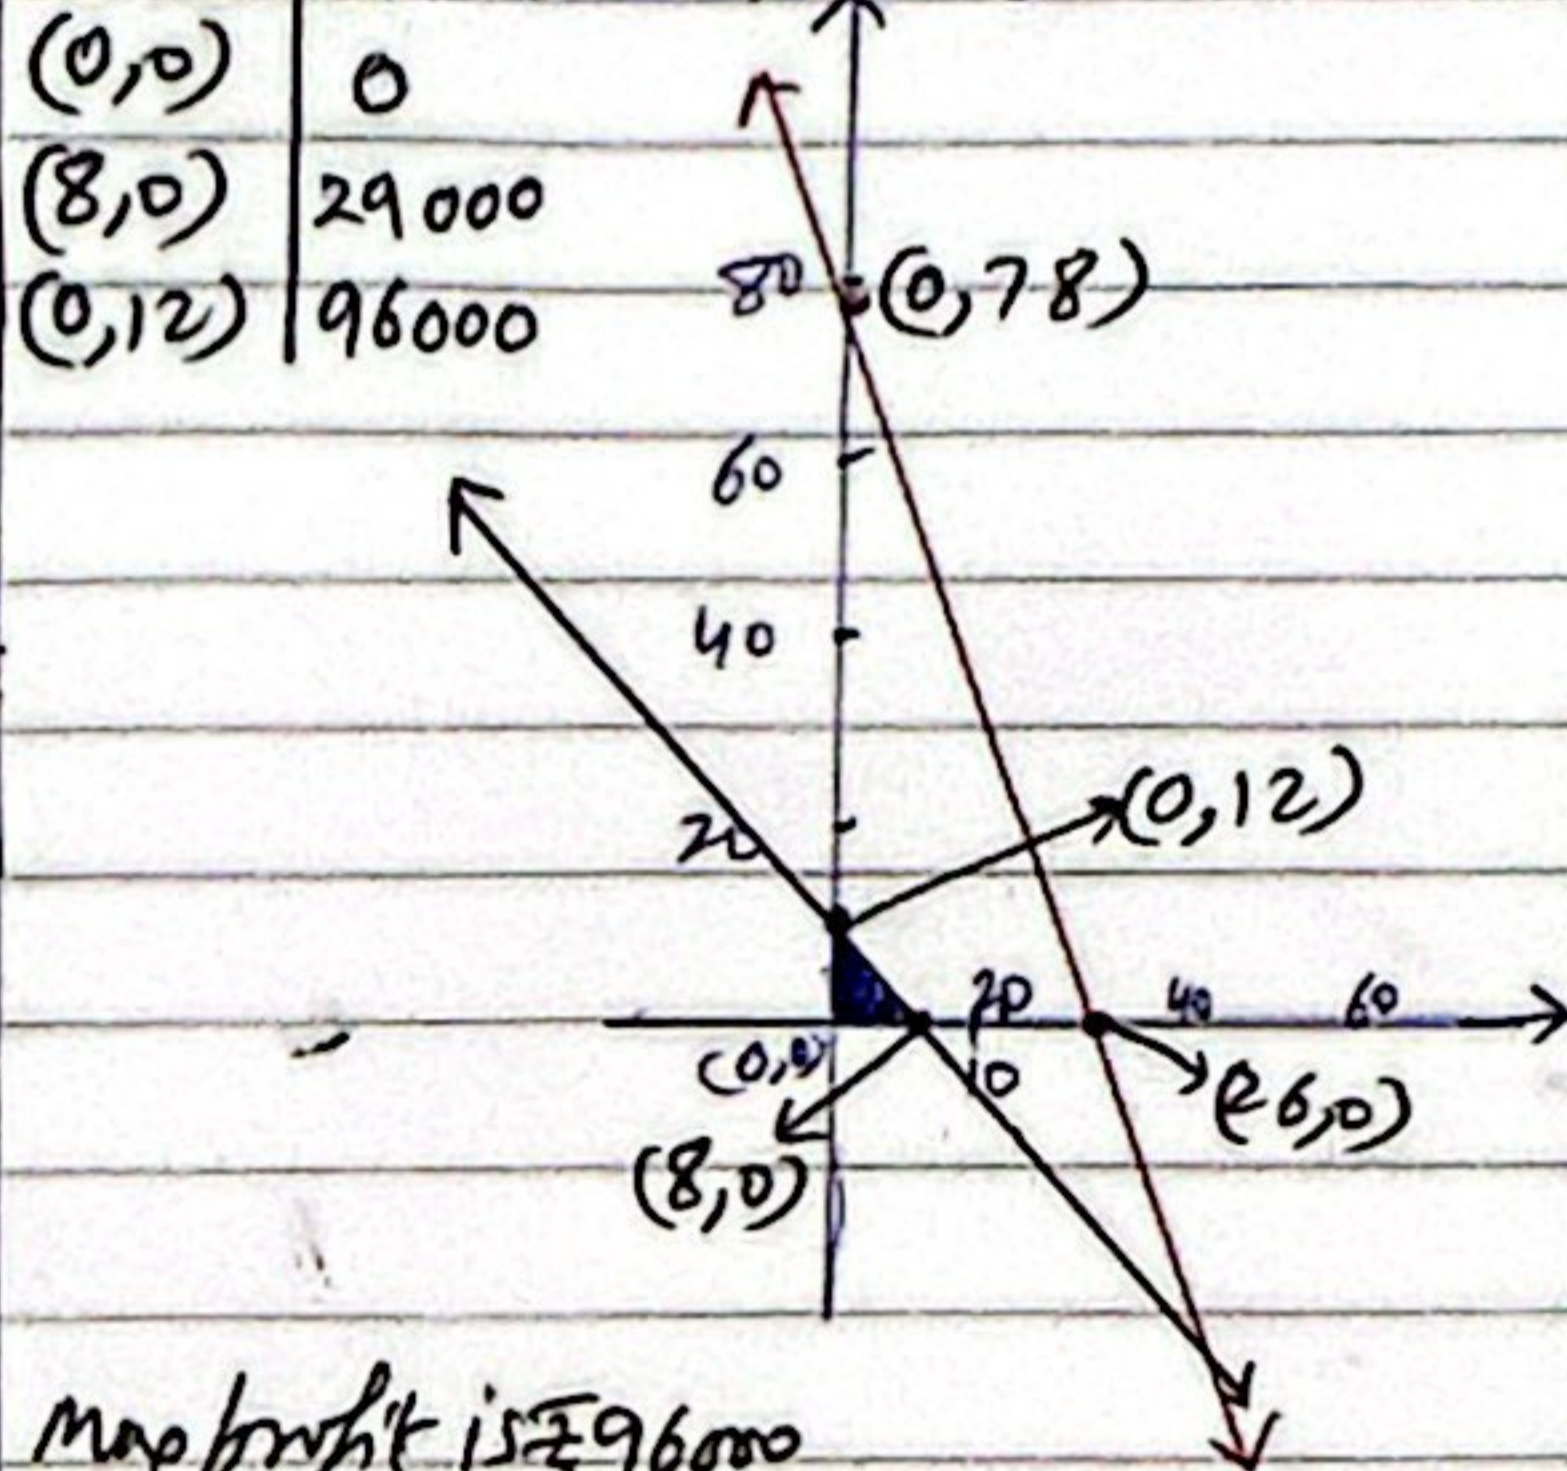 (0,0) | 0
(8,0) | 29000
(0,12) | 96000
80 (0,78)
60
40
(0,12)
20
20 40 60
(0,0) 10 (26,0)
(8,0)
Max profit is ₹96000